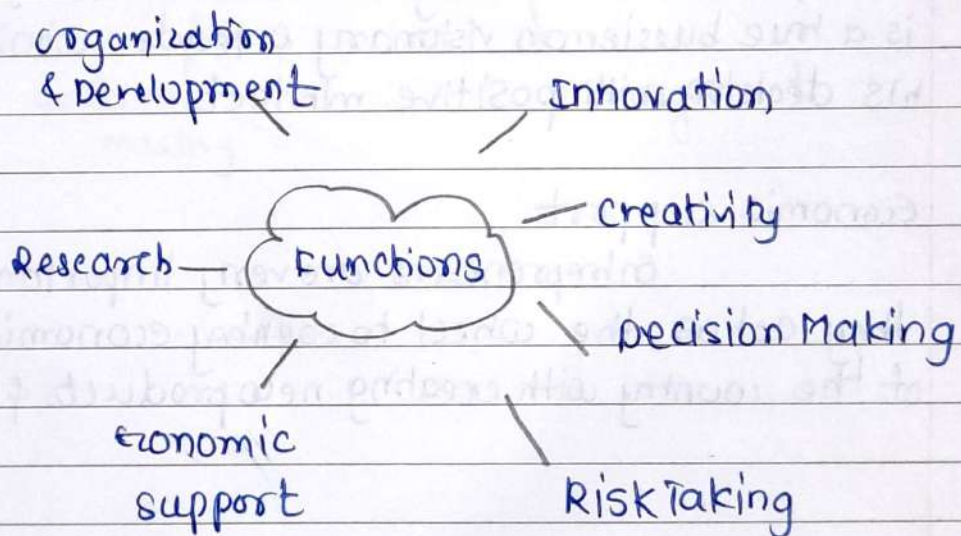 Organization
& Development
Innovation
Creativity
Research
Functions
Decision Making
Economic
support
Risk Taking